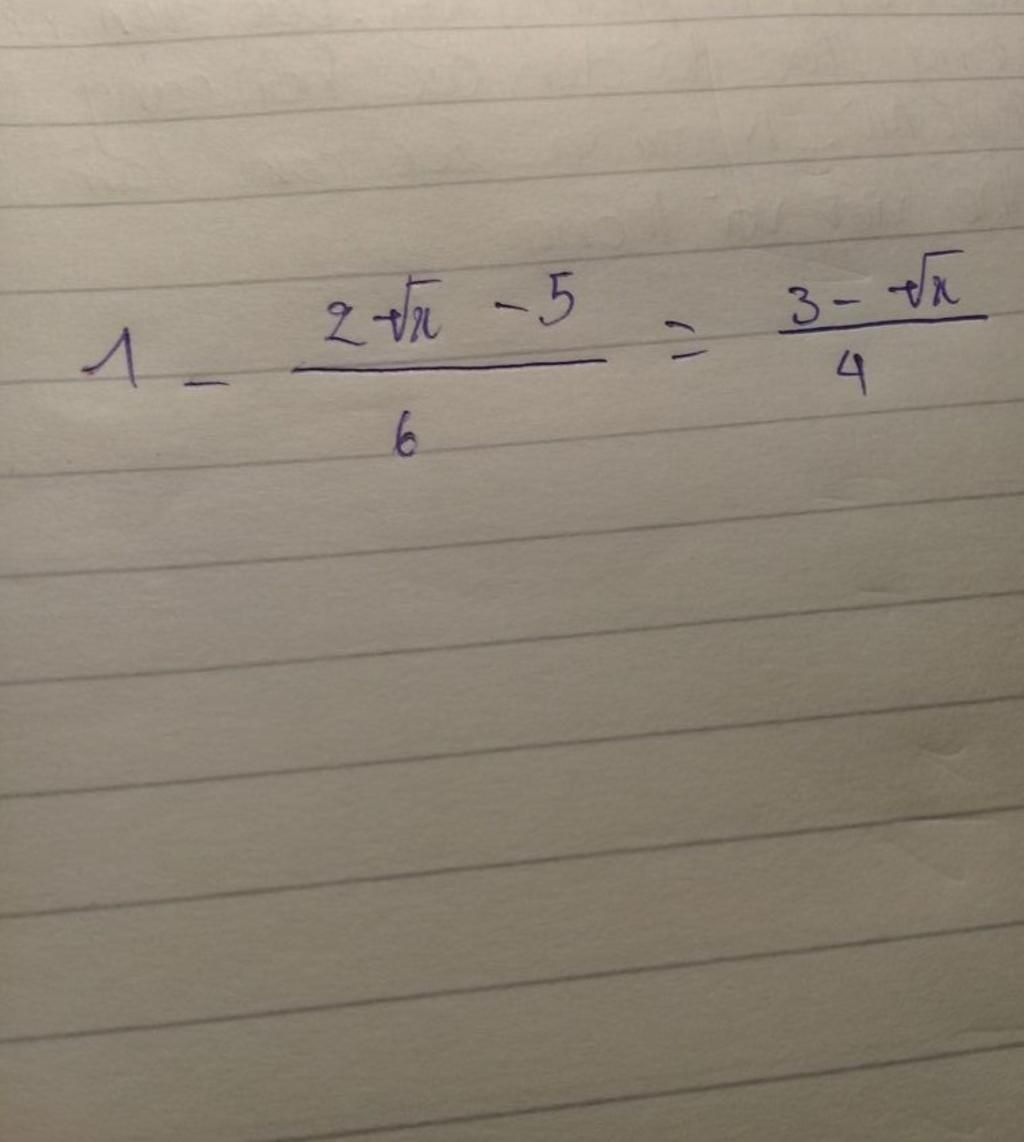 1 - \frac{2\sqrt{x} - 5}{6} = \frac{3 - \sqrt{x}}{4}